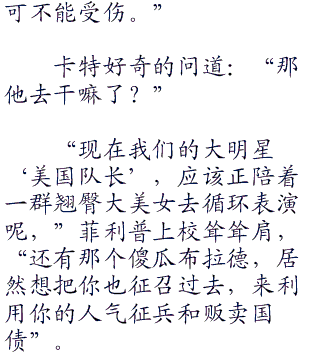 可不能受伤。”
卡特好奇的问道：“那
他去干嘛了？”
“现在我们的大明星
‘美国队长’，应该正陪着
一群翘臀大美女去循环表演
呢，”菲利普上校耸耸肩，
“还有那个傻瓜布拉德，居
然想把你也征召过去，来利
用你的人气征兵和贩卖国
债”。